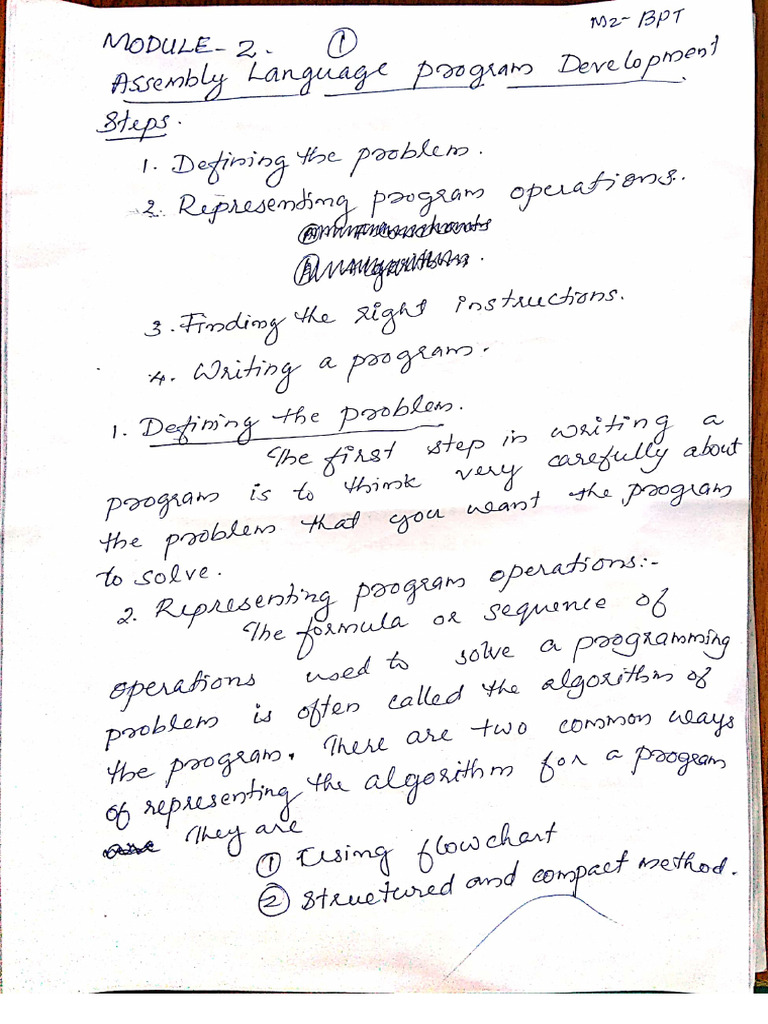 M2-BPT
MODULE-2. ①
Assembly Language program Development
Steps.
1. Defining the problem.
2. Representing program operations.
3. Finding the right instructions.
4. Writing a program.
1. Defining the problem.
The first step in writing a
program is to think very carefully about
the problem that you want the program
to solve.
2. Representing program operations:-
The formula or sequence of
operations used to solve a programming
problem is often called the algorithm of
the program. There are two common ways
of representing the algorithm for a program
are They are
① Using flowchart
② Structured and compact method.